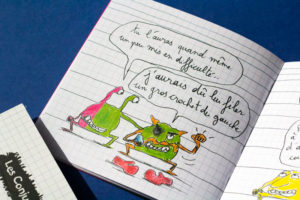 tu l'auras quand même
un peu mis en difficulté...
j'aurais dû lui filer
un gros crochet de gauche
Les Conju